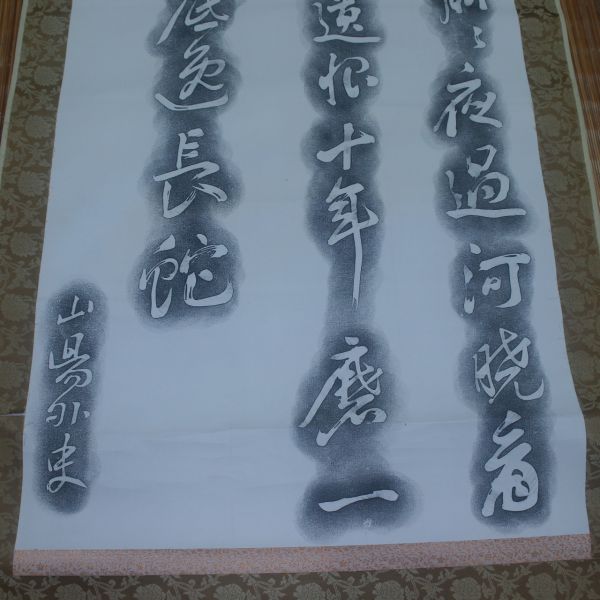 肅々夜過河暁看
遺恨十年磨一
底逸長蛇
山陽外史